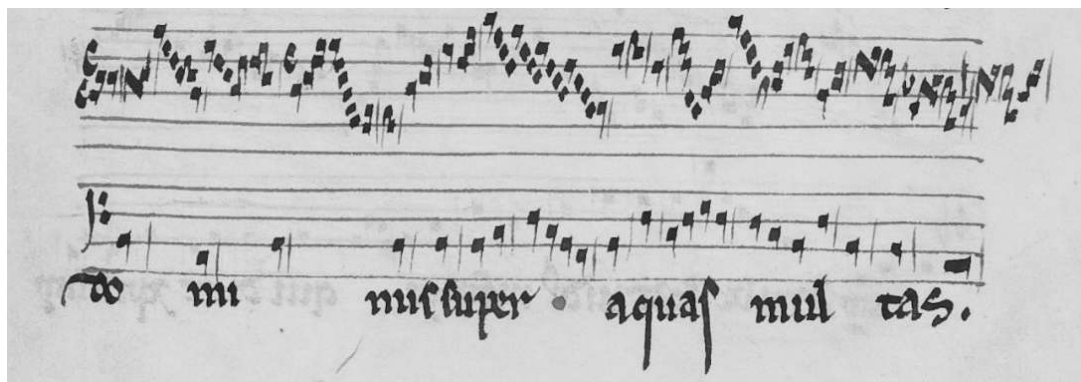 do mi nus super aquas mul tas.